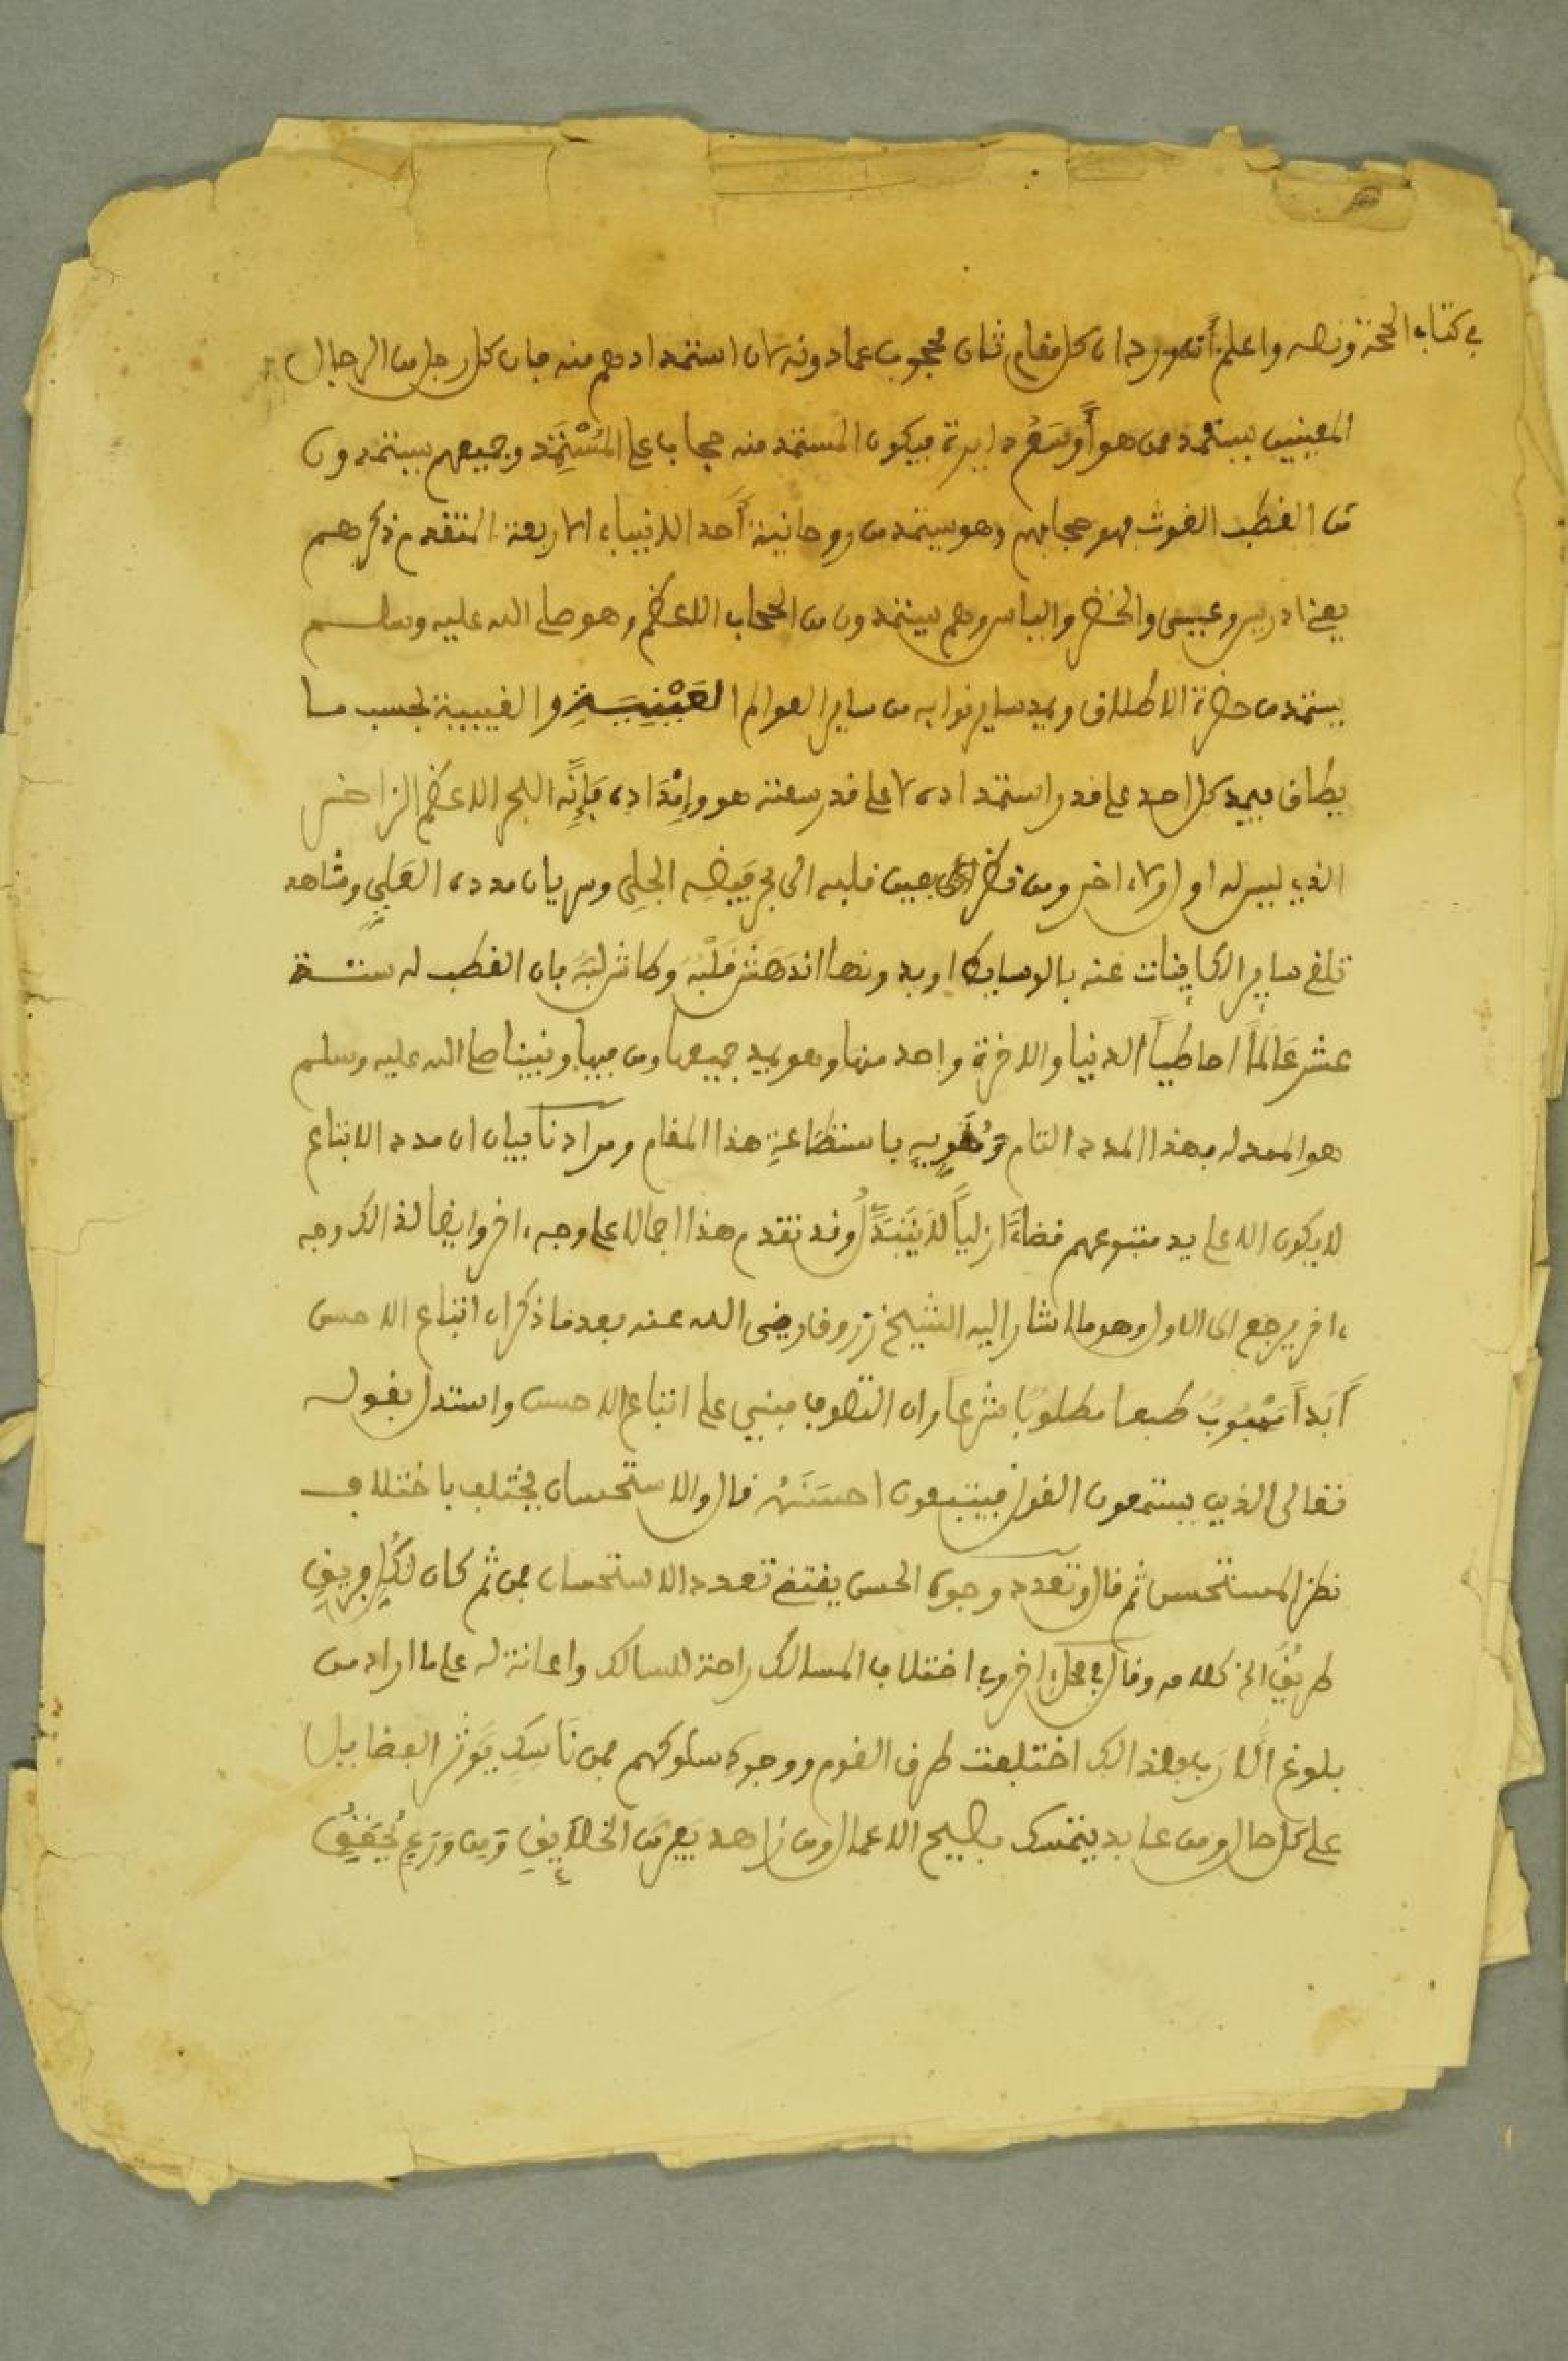 في كتابه المحنة ونصه واعلم أنه ورد ان كل مقام ثان محجوب عما دونه لان استمدادهم منه فان كل رجل من الرجال
المعينين يستمد ممن هو أوسع دايرة فيكون المستمد منه حجاب على المُسْتَمِد وجميعهم يستمدون
من القطب الغوث فهو حجابهم وهو يستمد من روحانية أحد الانبياء الاربعة المتقدم ذكرهم
يعني ادريس وعيسى والخضر والياس وهم يستمدون من الحجاب الاعظم وهو صلى الله عليه وسلم
يستمد من حضرة الاطلاق ويمد ساير نوابه من ساير العوالم العَيْنِيَةِ والغيبية بحسب ما
يطاق فيمد كل احد على قدر استمداده لا على قدر سعته هو وإِمْدَادِه فَإِنَّه البحر الاعظم الزاخر
الذي ليس له اول ولا اخر ومن نظر بعين قلبه الى بحر فَيضِه الجلِي وسريان مدده العَلِيِ وشاهد
تلقي ساير الكاينات عنه بالوسايط او بدونها اندَهَشَ قَلْبُه وطاش لبُّه فان القطب له ستة
عشر عَالَماً احاطياً الدنيا والاخرة واحد منها وهو يمد جميعها ومن فيها ونبينا صلى الله عليه وسلم
هو الممد له بهذا المدد التام وَمُقَوِيهِ باستطاعةِ هذا المقام ومرادنا بيان ان مدد الاتباع
لا يكون الا على يد متبوعهم قضاءً ازلياً لا يَتَبَدَّلُ وقد تقدم هذا اجمالا على وجه ءاخر وايضا لذالك وجه
ءاخر يرجع الى الاول وهو ما اشار اليه الشيخ زروق رضي الله عنه بعد ما ذكر ان اتباع الاحسن
أَبَداً مَحْبُوبٌ طبعا مطلوبٌا شرعاً وان التصوف مبني على اتباع الاحسن واستدل بقوله
تعالى الذين يستمعون القول فيتبعون احسَنَهُ قال والاستحسان يختلف باختلاف
نظر المستحسن ثم قال وتعدد وجوه الحسن يقتضي تعدد الاستحسان فمن ثم كان لكُلِ فريقٍ
طريقٌ الخ كلامه وقال في محل ءاخر وفي اختلاف المسالك راحة للسالك واعانة له على ما اراد من
بلوغ الأرَبِ ولذالك اختلفت طرق القوم ووجوه سلوكهم فمن نَاسِكٍ يؤثر الفضايل
على كل حال ومن عابد يتمسك بصحيح الاعمال ومن زاهد يَفِرُّ من الخَلَايِقِ وَمِن وَرَعٍ يُحَقِّقُ